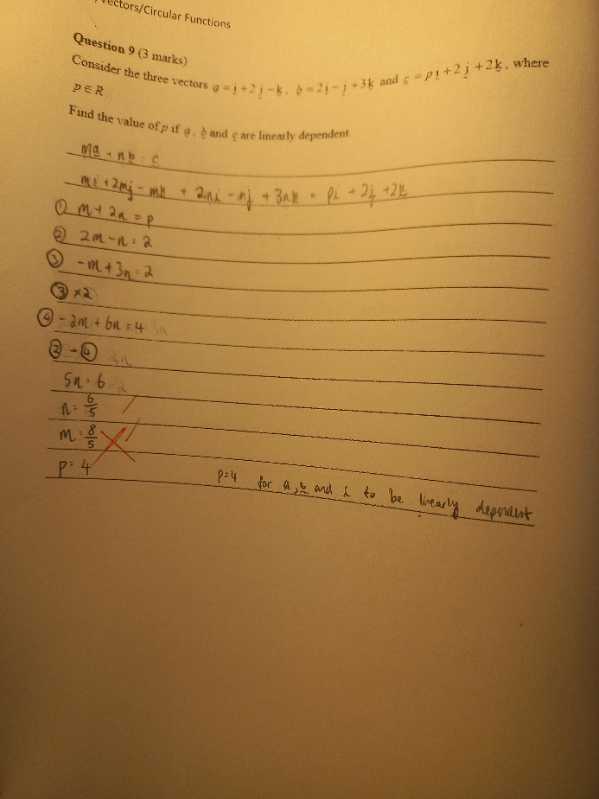 Vectors/Circular Functions
Question 9 (3 marks)
Consider the three vectors a = i + 2j - k, b = 2i - j + 3k and c = pi + 2j + 2k, where
p ∈ R
Find the value of p if a, b and c are linearly dependent
ma + nb = c
mi + 2mj - mk + 2ni - nj + 3nk = pi + 2j + 2k
① m + 2n = p
② 2m - n = 2
③ -m + 3n = 2
③ ×2
④ -2m + 6n = 4
② - ④
5n = 6
n = 6/5
m = 8/5
p = 4
p=4 for a, b and c to be linearly dependent